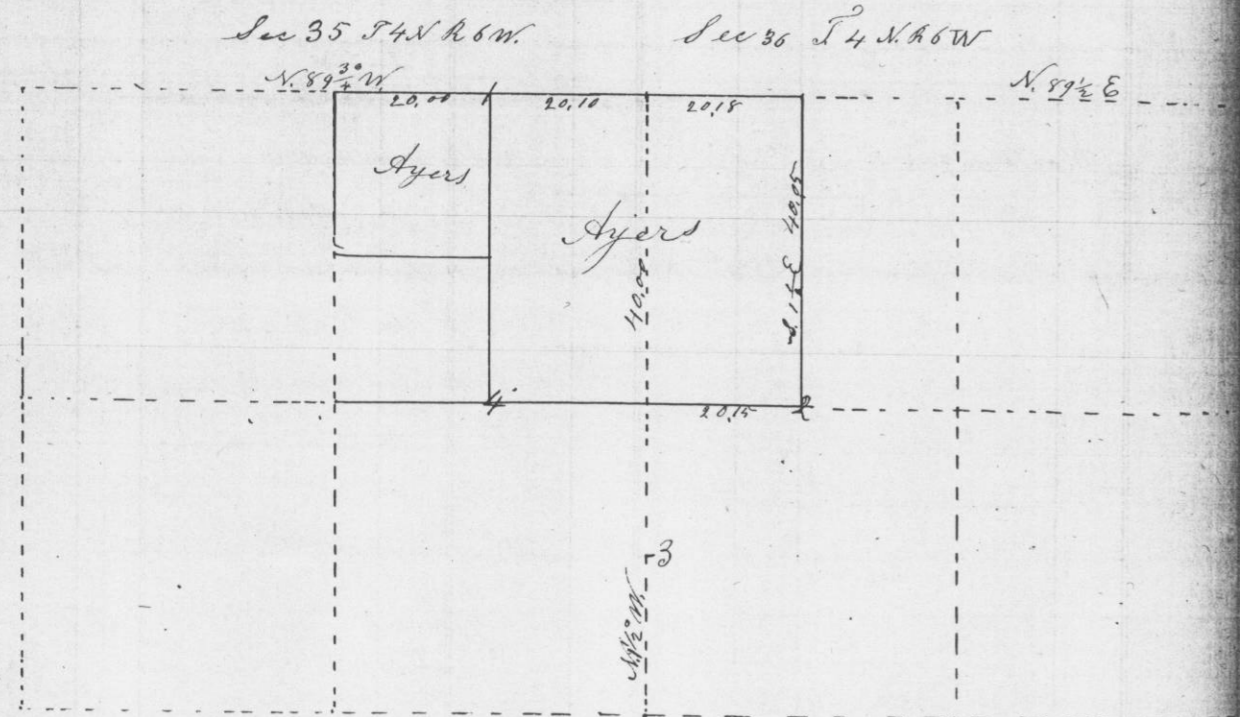 Sec 35 T4N R6W. Sec 36 T 4 N. R6W
N. 89 3/4° W. N. 89 1/2 E
20,00 1 20,10 20,18
Ayers
Ayers
40,00
40,05
4 20,15 2
3